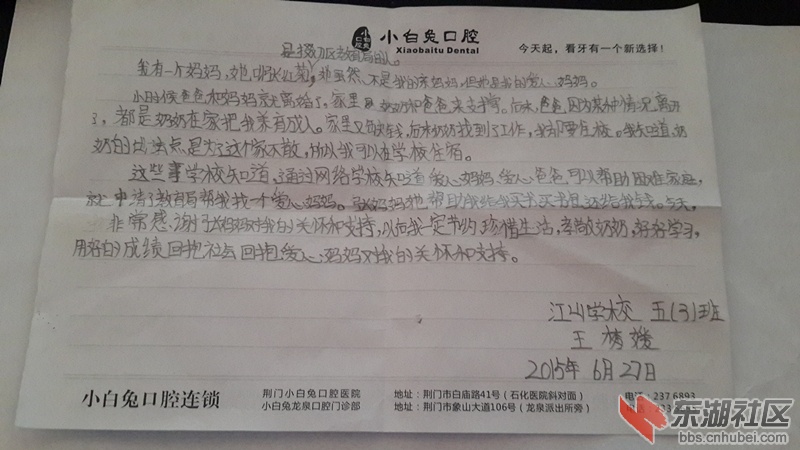 小白兔口腔
Xiaobaitu Dental
今天起，看牙有一个新选择！
是掇刀区教育局的人。
我有一个妈妈，她叫张红菊，她虽然不是我的亲妈妈，但她是我的爱心妈妈。
小时候爸爸和妈妈就离婚了，家里是奶奶和爸爸来支撑。后来，爸爸因为某种情况离开
了，都是奶奶在家把我养育成人。家里又没钱，后来奶奶找到了工作，我却要住校。我知道，奶
奶的出发点是为了这个家不散，所以我可以在学校住宿。
这些事学校知道，通过网络学校知道爱心妈妈、爱心爸爸可以帮助困难家庭，
就申请了教育局帮我找个爱心妈妈。张妈妈她帮助我给我买书买书包还给我钱。今天，
非常感谢张妈妈对我的关怀和支持，以后我一定节约珍惜生活，孝敬奶奶，好好学习，
用好的成绩回报社会回报爱心妈妈对我的关怀和支持。
江山学校 五(3)班
王
2015年6月27日
小白兔口腔连锁
荆门小白兔口腔医院
地址：荆门市白庙路41号（石化医院斜对面）
电话：237 6893
小白兔龙泉口腔门诊部
地址：荆门市象山大道106号（龙泉派出所旁）
东湖社区
bbs.cnhubei.com